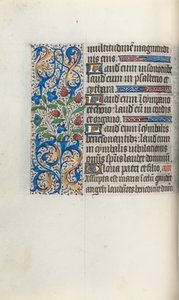 multitudinem magnitudi
nis eius.
Laud eum in sono tube
laud eum in psalterio et
cythara.
Laud eum i tympano
et choro: laud eum in cordis
et organo.
Laud eum i cymbalis
benesonantibz: laud eum
in cymbalis iubilationis
omnis spūs laudet dominū.
Gloria patri et filio.
Assupta est maria i celū gaudēt
angeli laudātes benedicūt dom